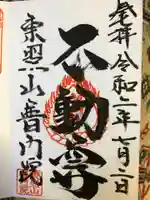 奉拝 令和二年七月二日
不動尊
東照山普門院